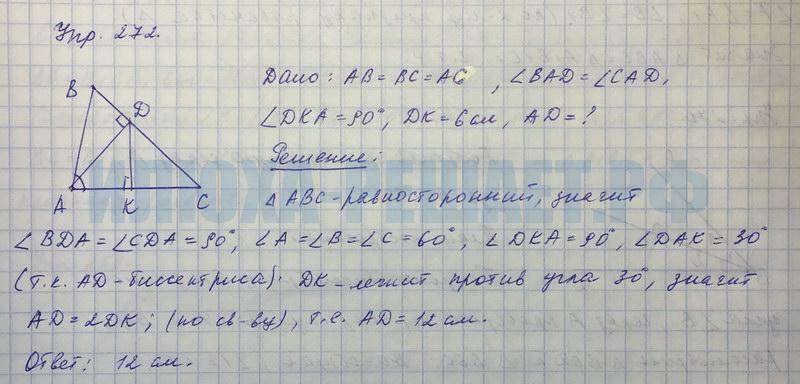 Упр. 272.
Дано: AB = BC = AC, ∠BAD = ∠CAD,
∠DKA = 90°, DK = 6 см, AD = ?
Решение:
B
D
A
K
C
△ ABC - равносторонний, значит
∠BDA = ∠CDA = 90°, ∠A = ∠B = ∠C = 60°, ∠DKA = 90°, ∠DAK = 30°
(т.к. AD - биссектриса). DK - лежит против угла 30°, значит
AD = 2DK; (по св-ву), т.е. AD = 12 см.
Ответ: 12 см.